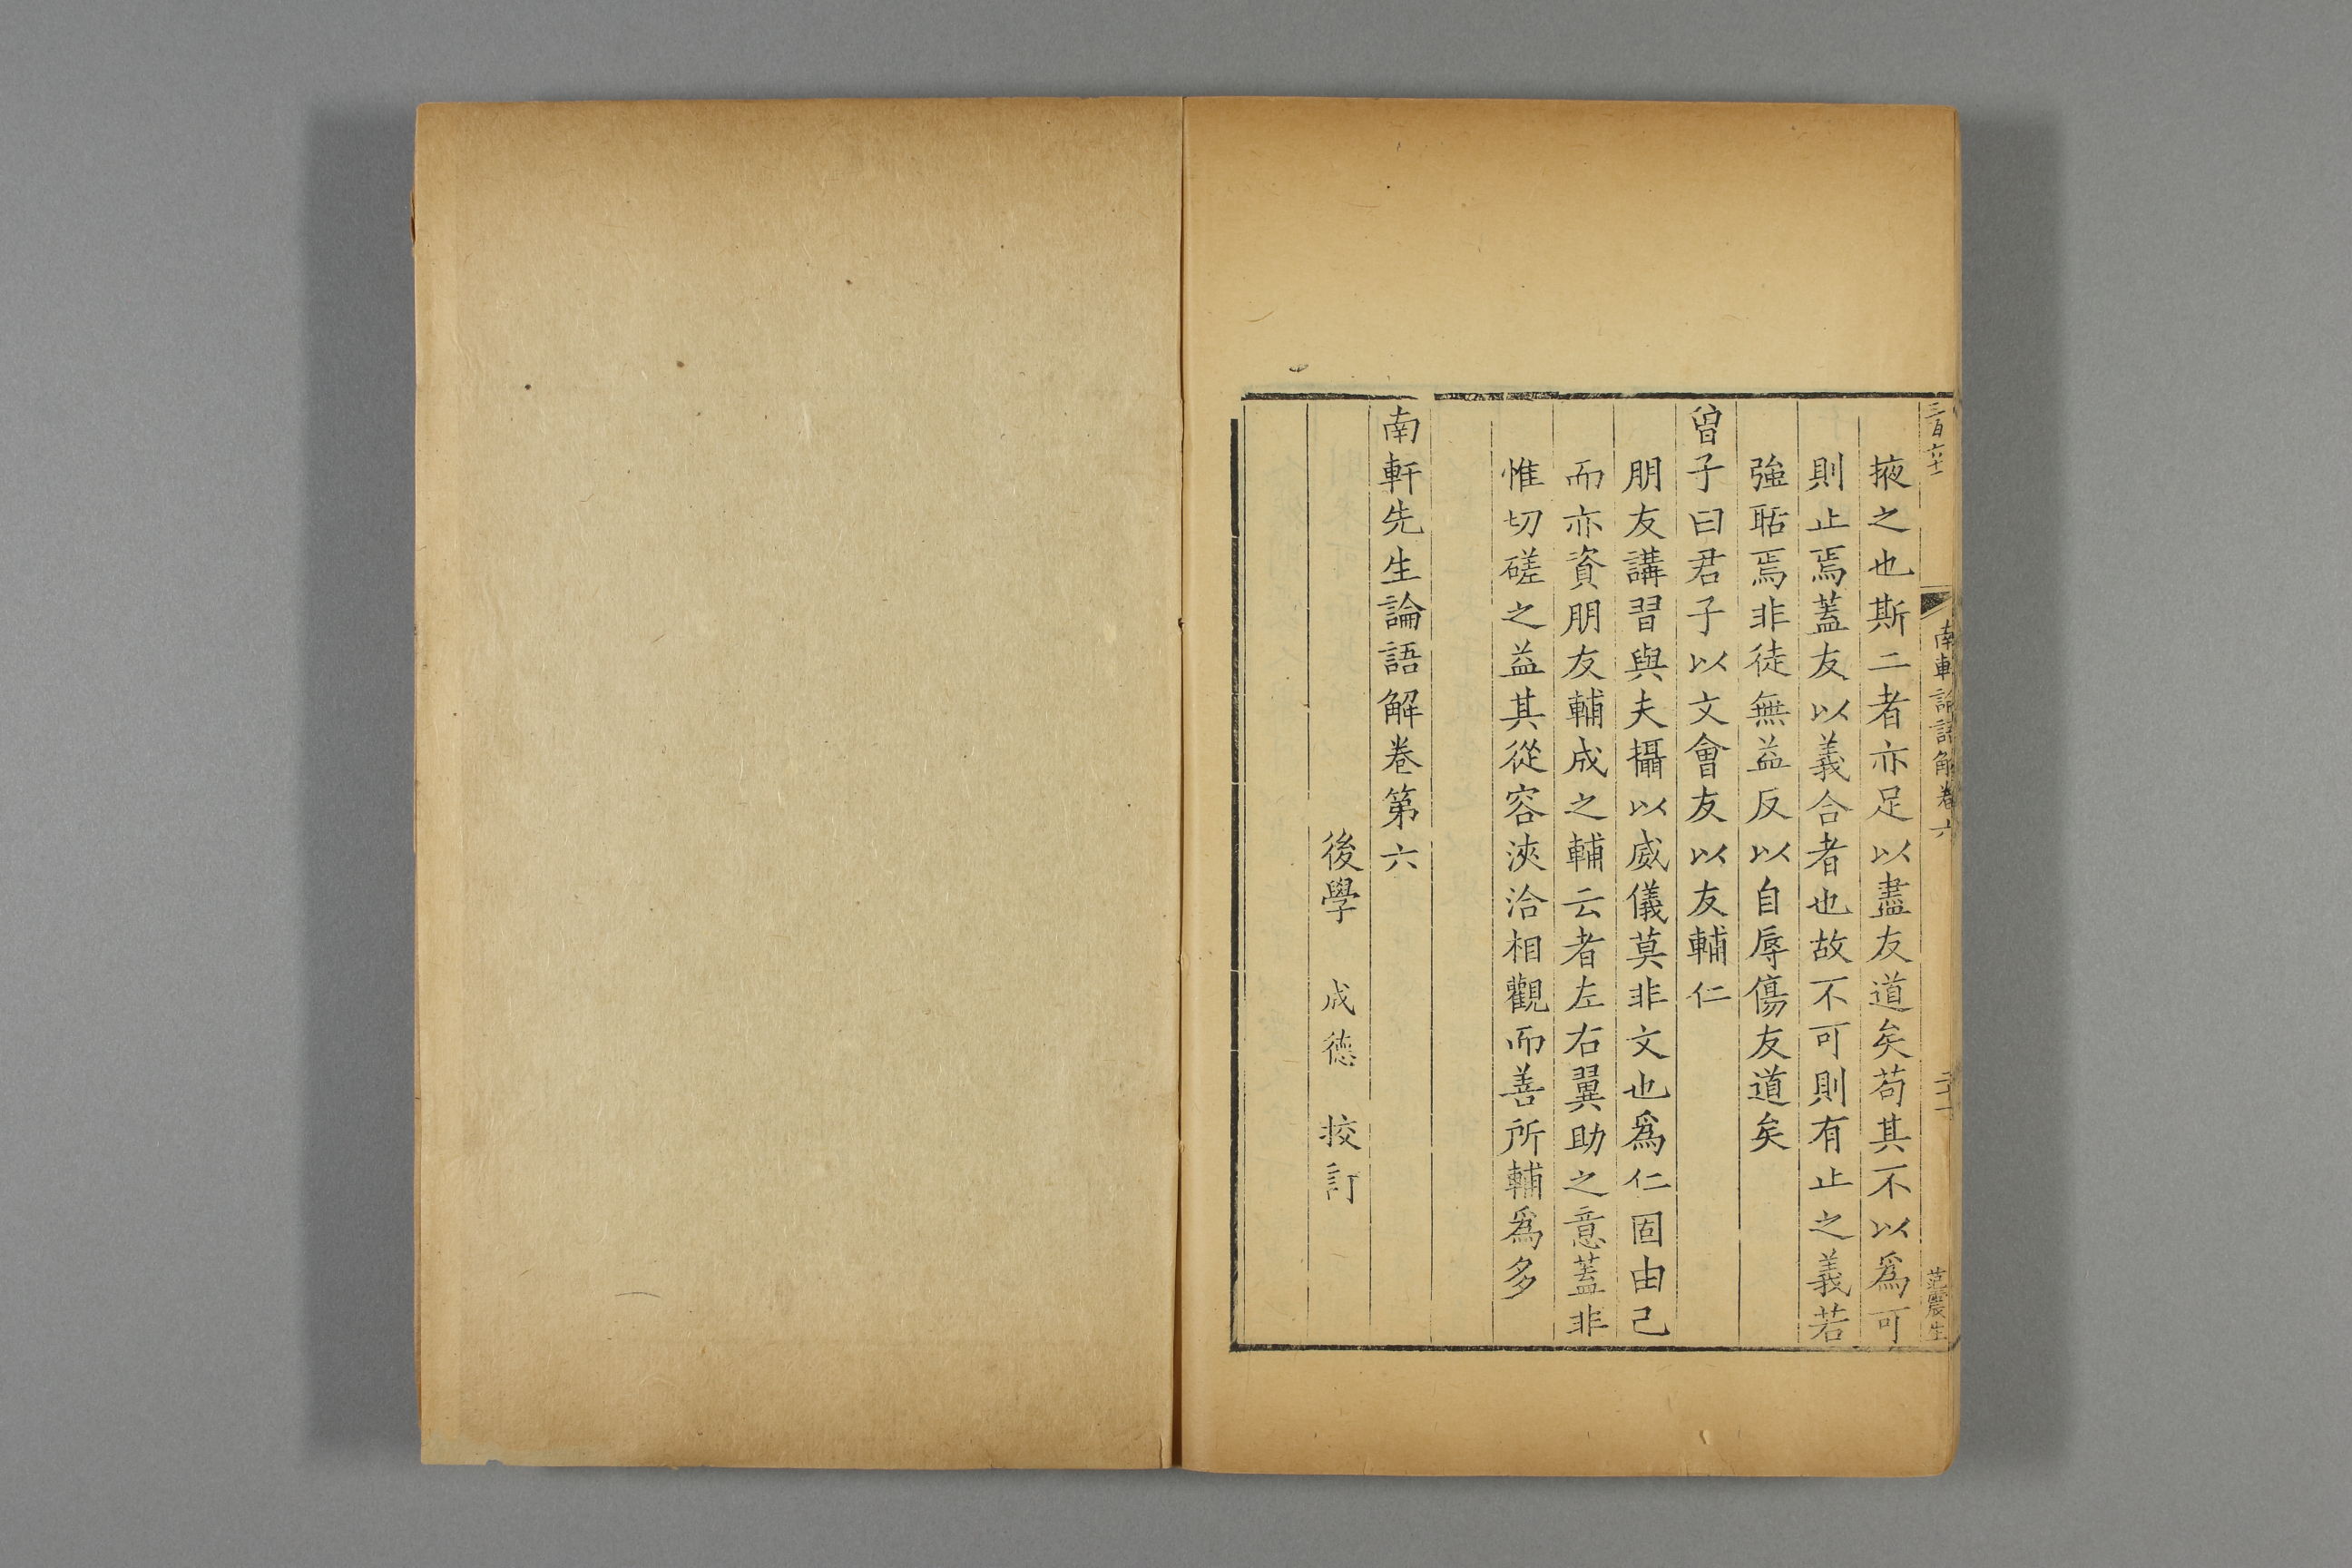 三百六十一
南軒論語解卷六
二十一
范震生
掖之也斯二者亦足以盡友道矣苟其不以爲可
則止焉蓋友以義合者也故不可則有止之義若
強聒焉非徒無益反以自辱傷友道矣
曾子曰君子以文會友以友輔仁
朋友講習與夫攝以威儀莫非文也爲仁固由己
而亦資朋友輔成之輔云者左右翼助之意蓋非
惟切磋之益其從容浹洽相觀而善所輔爲多
南軒先生論語解卷第六
後學 成德 挍訂